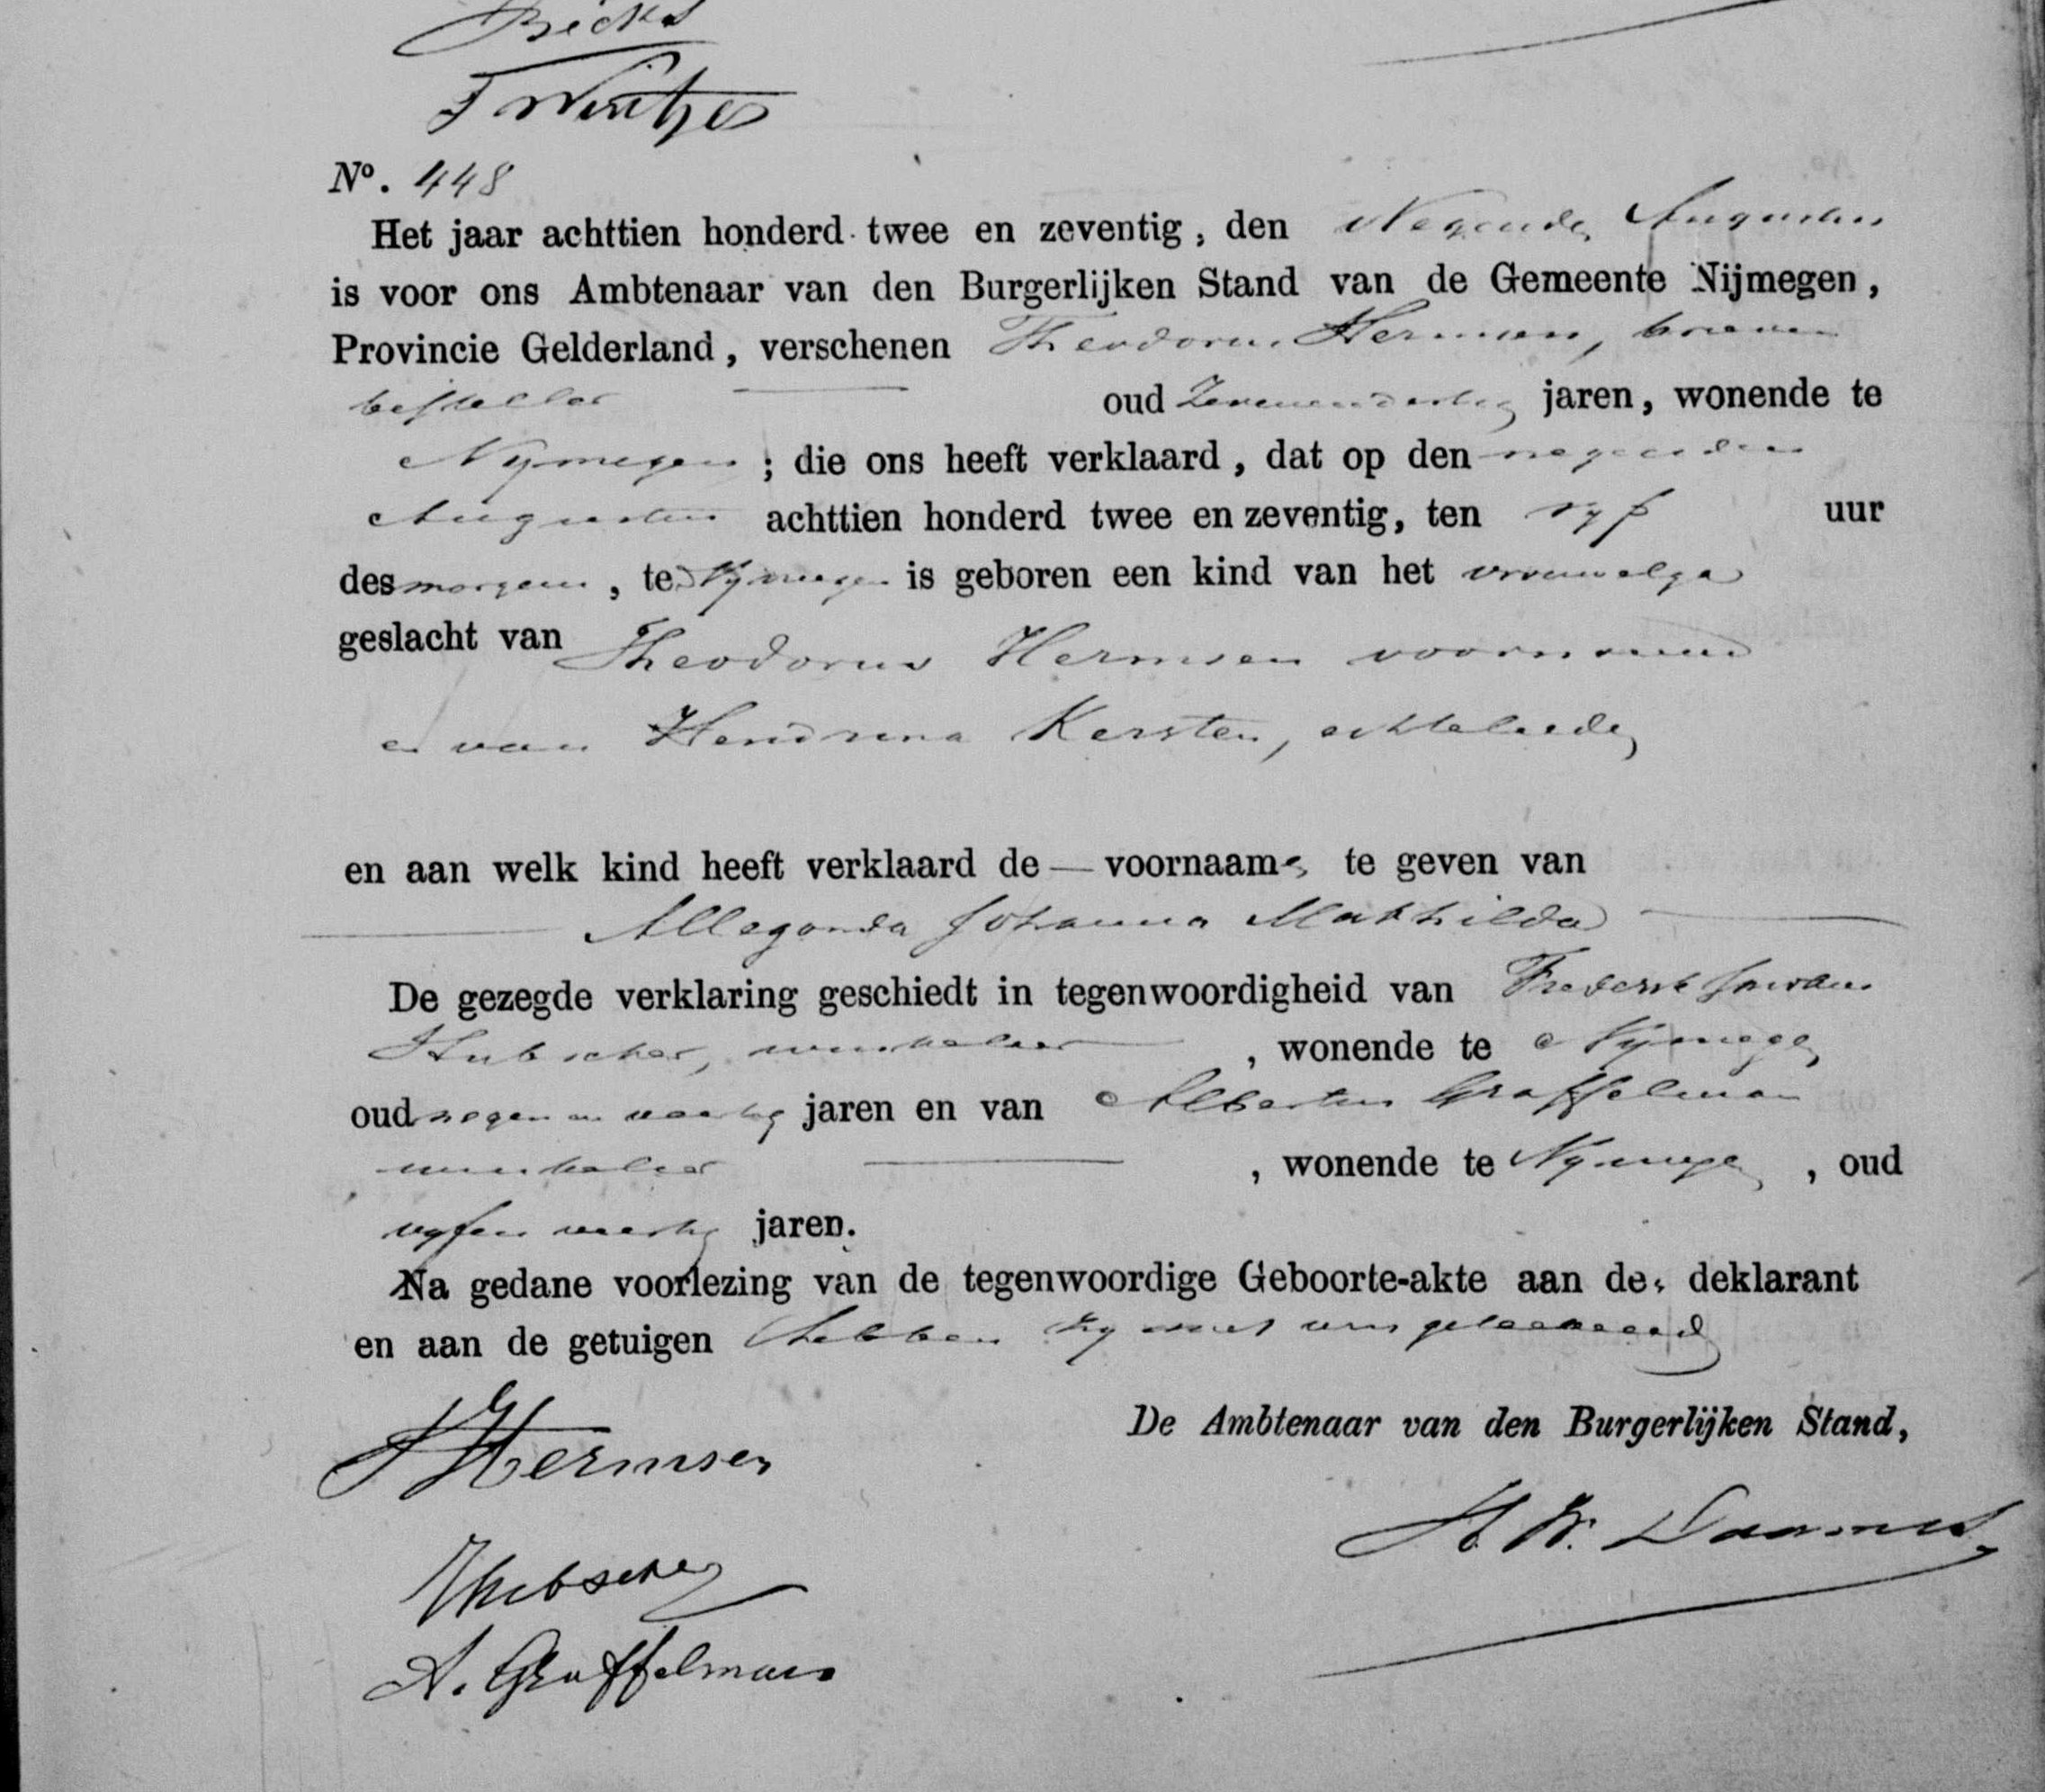 F Wintjes
Nº. 448
Het jaar achttien honderd twee en zeventig, den Negenden Augustus
is voor ons Ambtenaar van den Burgerlijken Stand van de Gemeente Nijmegen,
Provincie Gelderland, verschenen Theodorus Hermsen, brieven
besteller oud Zevenendertig jaren, wonende te
Nijmegen ; die ons heeft verklaard, dat op den negenden
Augustus achttien honderd twee en zeventig, ten vijf uur
des morgens, te Nijmegen is geboren een kind van het vrouwelijke
geslacht van Theodorus Hermsen voornoemd
en van Hendrina Kersten, echtelieden
en aan welk kind heeft verklaard de — voornaams te geven van
Allegonda Johanna Mathilda
De gezegde verklaring geschiedt in tegenwoordigheid van Frederik
Hubscher, winkelier, wonende te Nijmegen
oud negen en veertig jaren en van Albertus Graffelman
winkelier, wonende te Nijmegen, oud
vijfen veertig jaren.
Na gedane voorlezing van de tegenwoordige Geboorte-akte aan den deklarant
en aan de getuigen hebben zij met ons geteekend
De Ambtenaar van den Burgerlijken Stand,
T Hermsen
Hubscher
A. Graffelman